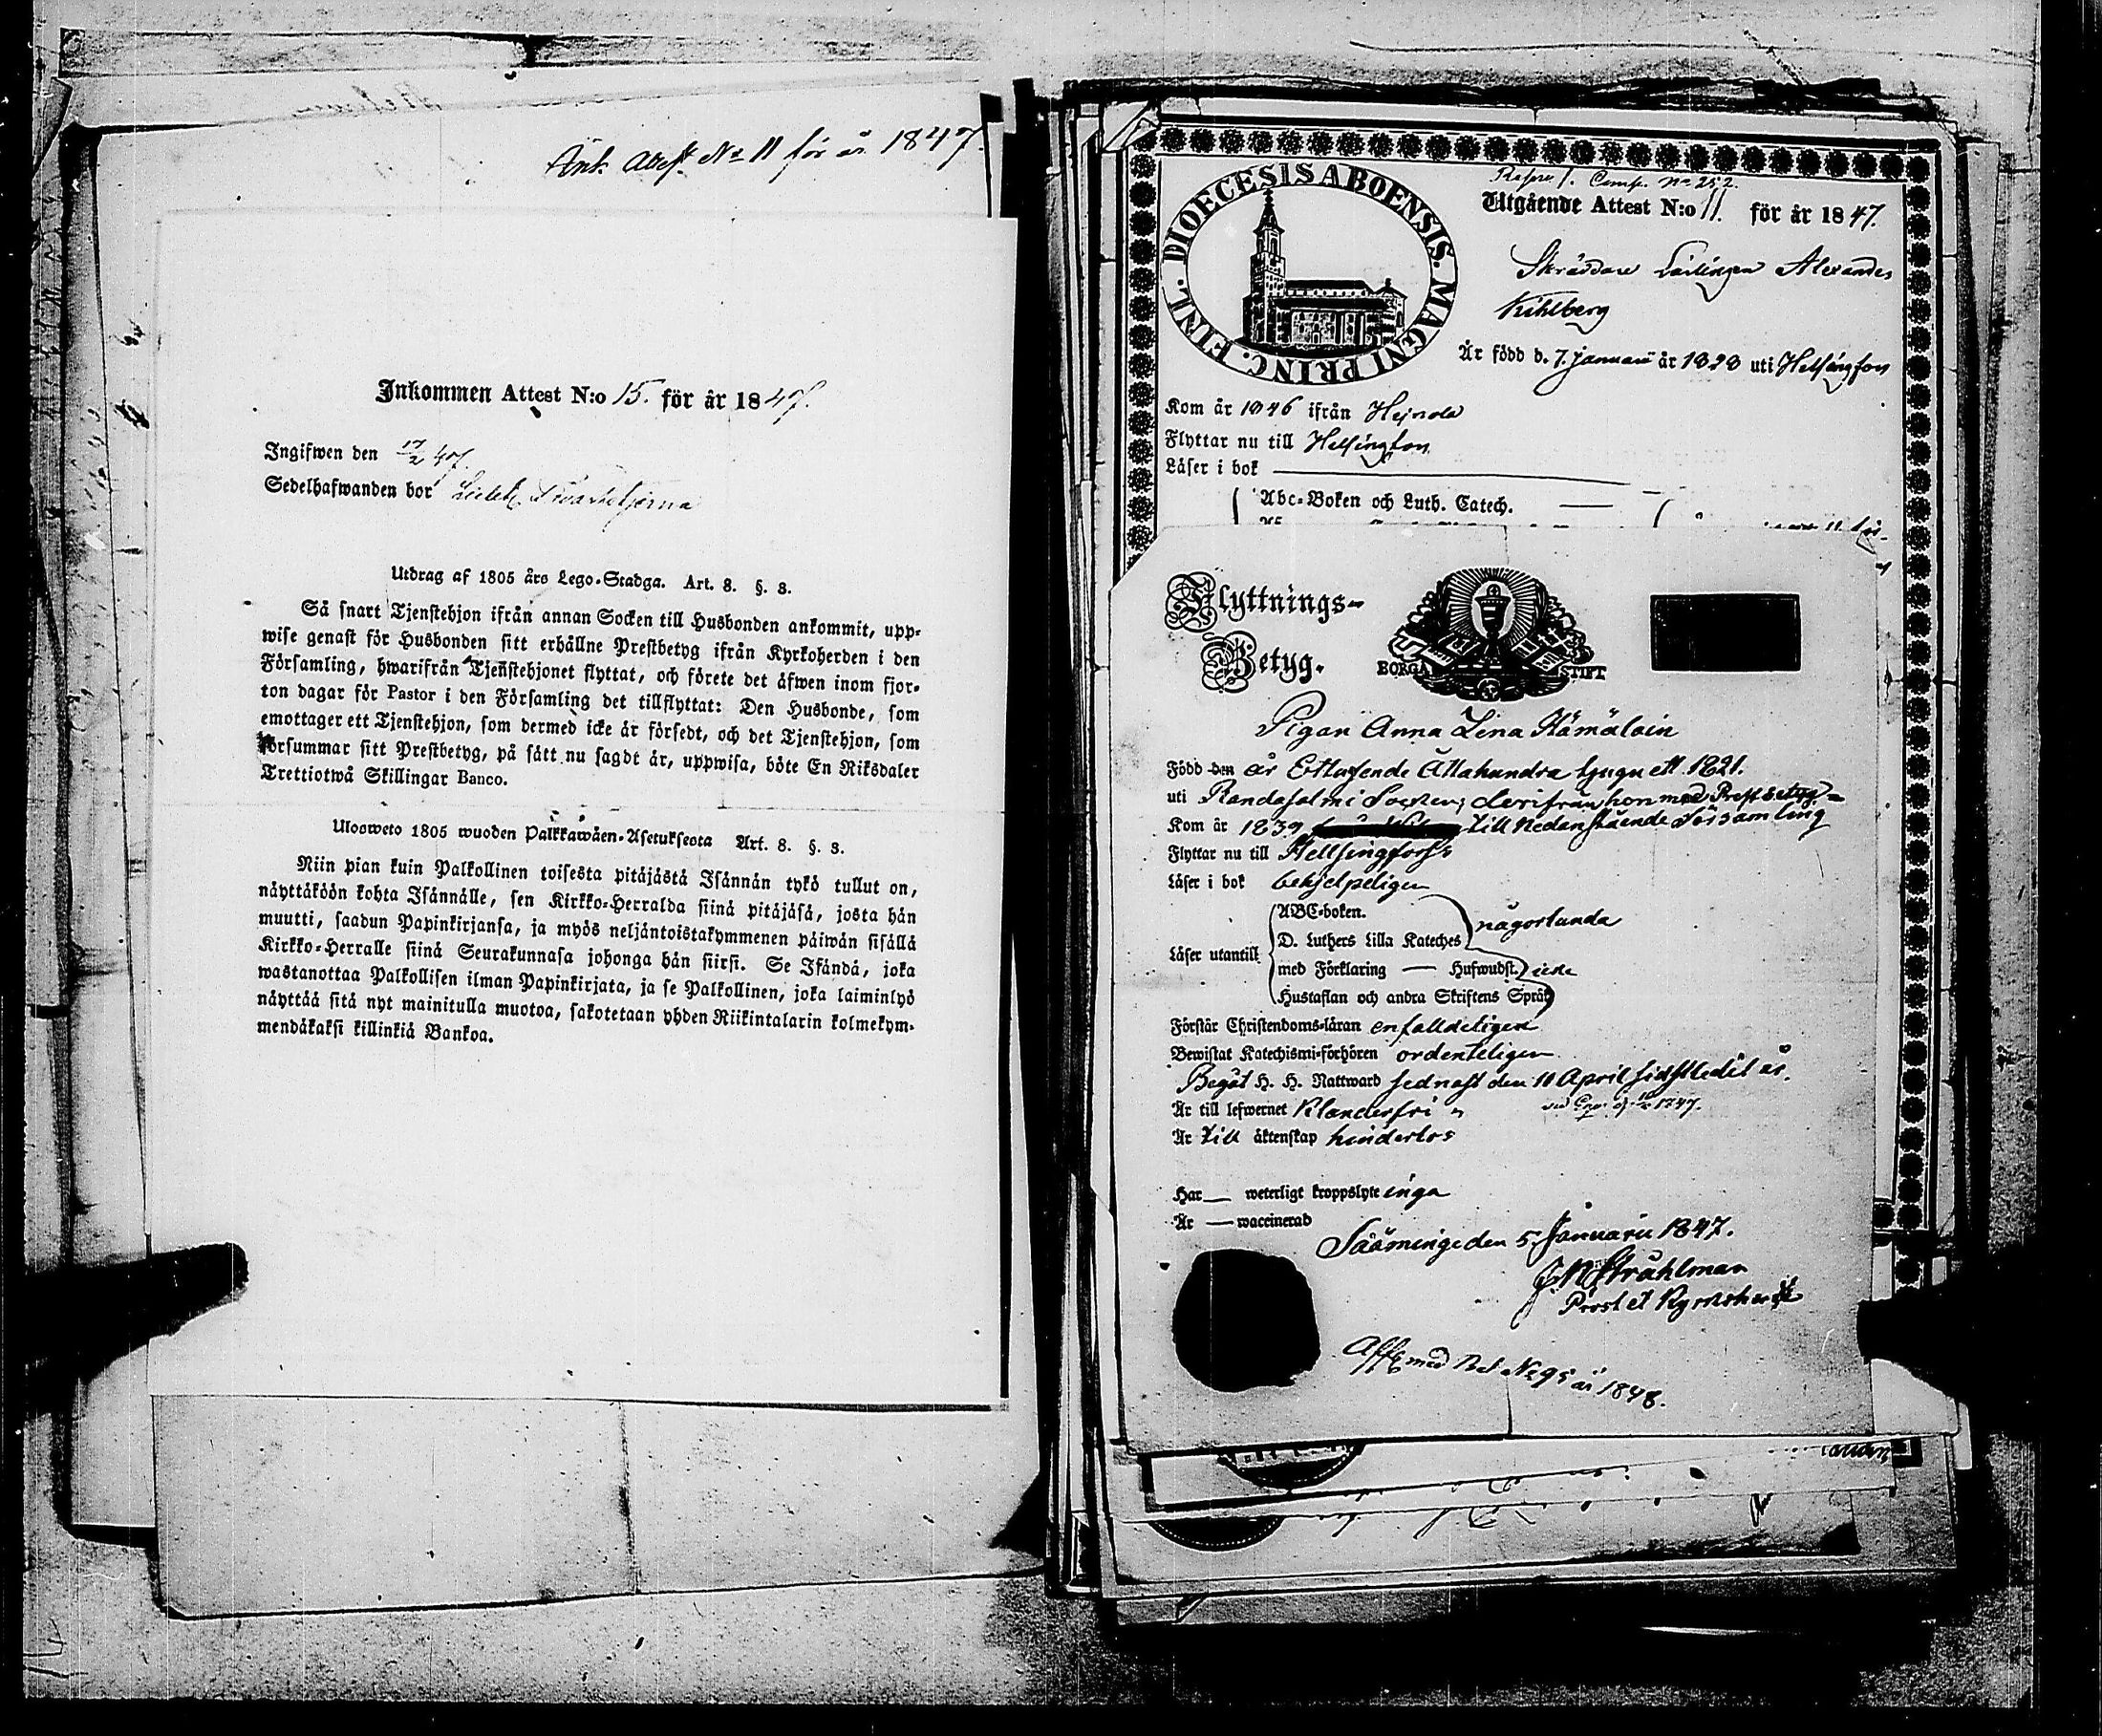 Ank. attest No 11 för år 1847.
Inkommen Attest N:o 15. för år 1847.
Ingifwen den 17/2 47.
Sedelhafwanden bor
Utdrag af 1805 års Lego-Stadga. Art. 8. §. 3.
Så snart Tjenstehjon ifrån annan Socken till Husbonden ankommit, upp-
wise genast för Husbonden sitt erhållne Prestbetyg ifrån Kyrkoherden i den
Församling, hwarifrån Tjenstehjonet flyttat, och förete det äfwen inom fjor-
ton dagar för Pastor i den Församling det tillflyttat: Den Husbonde, som
emottager ett Tjenstehjon, som dermed icke är försedt, och det Tjenstehjon, som
försummar sitt Prestbetyg, på sätt nu sagdt är, uppwisa, böte En Riksdaler
Trettiotwå Skillingar Banco.
Ulosweto 1805 wuoden Palkkawäen-Asetuksesta Art. 8. §. 3.
Niin pian kuin Palkollinen toisesta pitäjästä Isännän tykö tullut on,
näyttäköön kohta Isännälle, sen Kirkko-Herralda siinä pitäjäsä, josta hän
muutti, saadun Papinkirjansa, ja myös neljäntoistakymmenen päiwän sisällä
Kirkko-Herralle siinä Seurakunnasa johonga hän siirsi. Se Isändä, joka
wastanottaa Palkollisen ilman Papinkirjata, ja se Palkollinen, joka laiminlyö
näyttää sitä nyt mainitulla muotoa, sakotetaan yhden Riikintalarin kolmekym-
mendäkaksi killinkiä Bankoa.
DIOECESIS ABOENSIS. MAGNI PRINC. FINL.
Comp. No 252.
Utgående Attest N:o 11. för år 1847.
Skräddare Lärlingen Alexander
Kihlberg
Är född d. 7. Januari år 1828 uti Helsingfors
Kom år 1846 ifrån Hejnola
Flyttar nu till Helsingfors
Läser i bok
Abc-Boken och Luth. Catech.
Flyttnings-
Betyg.
BORGÅ STIFT
Pigan Anna Lena Hämäläin
Född den år Ettusende Åttahundra tjugu ett 1821.
uti Randasalmi Socken, derifrån hon med Prestbetyg
Kom år 1839 till nedanstående Församling
Flyttar nu till Hellsingfors
Läser i bok behjelpeligen
ABC-boken.
D. Luthers Lilla Kateches
någorlunda
Läser utantill
med Förklaring — Hufwudst. icke
Hustaflan och andra Skriftens Språk
Förstår Christendoms-läran enfalldeligen
Bewistat Katechismi-förhören ordenteligen
Begåt H. H. Nattward sednast den 11 April sidstledit år.
Är till lefwernet klanderfri
1847.
Är till äktenskap hinderlös
Har — weterligt kroppslyte inga
Är — waccinerad
Sääminge den 5. Januarii 1847.
J N Stråhlman
Prost et Kyrkoherde
med Bet. No 95 år 1848.